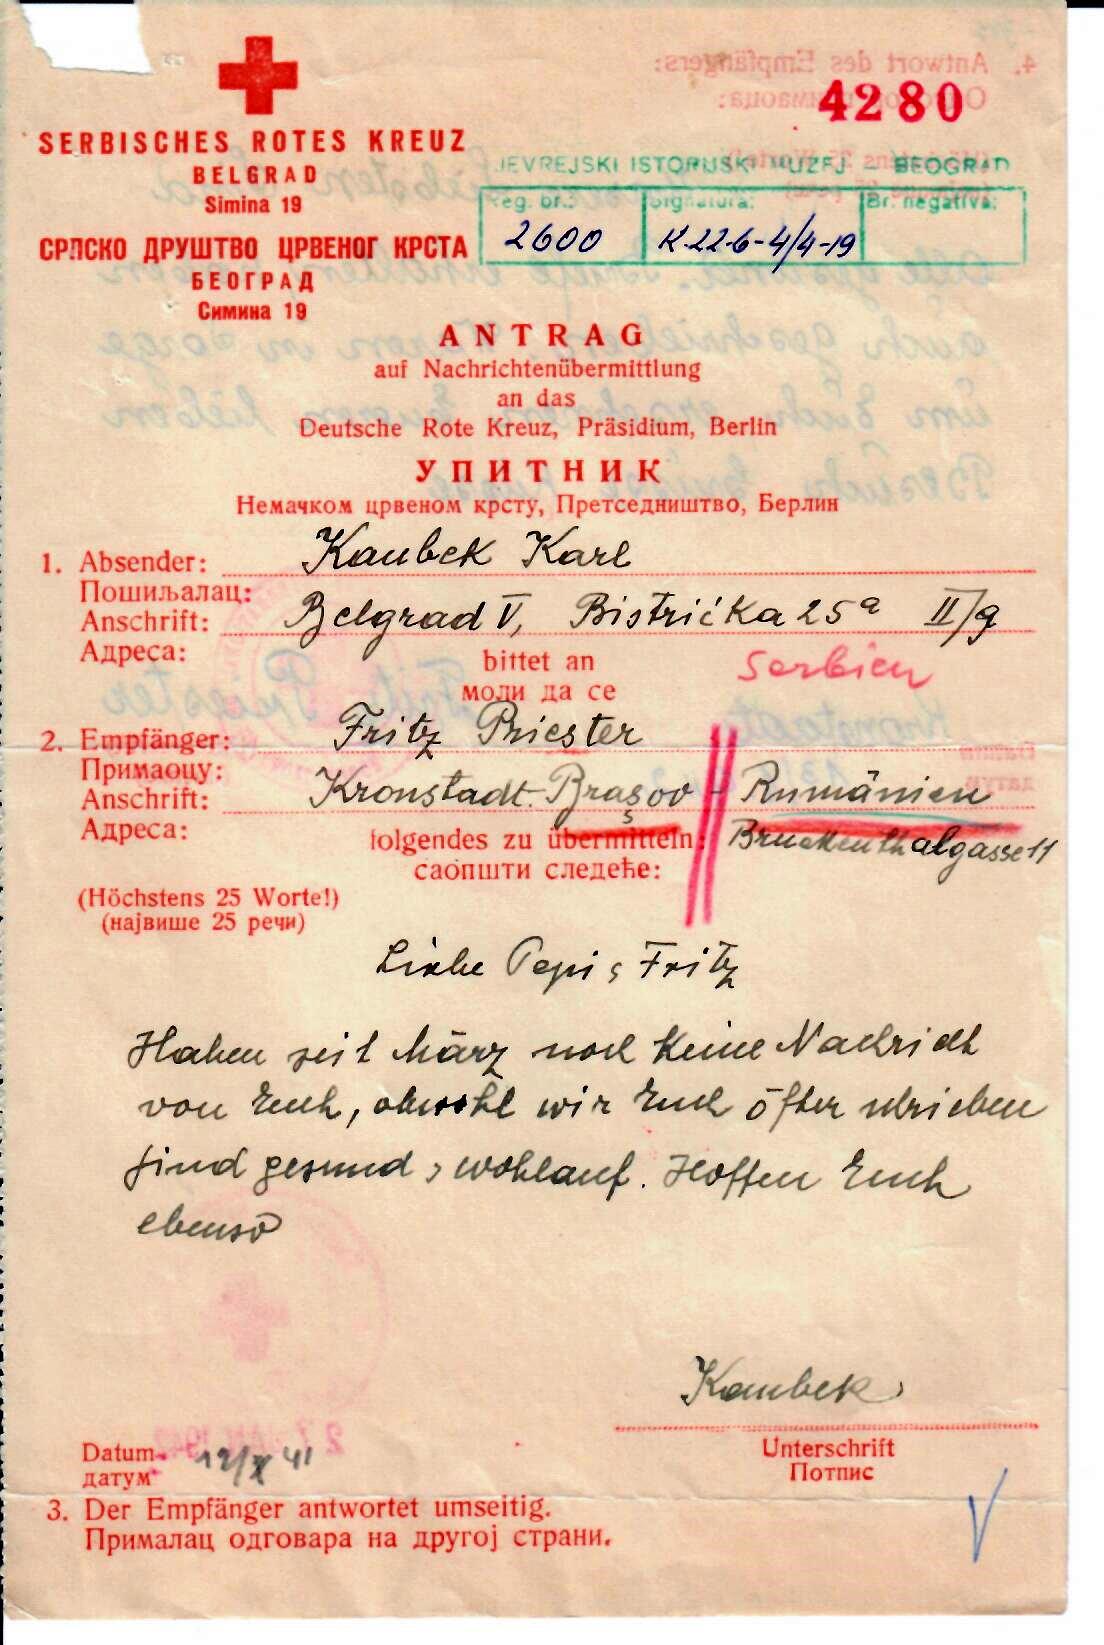 4280
SERBISCHES ROTES KREUZ
BELGRAD
Simina 19
СРПСКО ДРУШТВО ЦРВЕНОГ КРСТА
БЕОГРАД
Симина 19
JEVREJSKI ISTORIJSKI MUZEJ — BEOGRAD
Reg. br.: Signatura: Br. negativa:
2600 K-22-6-4/4-19
ANTRAG
auf Nachrichtenübermittlung
an das
Deutsche Rote Kreuz, Präsidium, Berlin
УПИТНИК
Немачком црвеном крсту, Претседништво, Берлин
1. Absender: Kaubek Karl
Пошиљалац:
Anschrift: Belgrad V, Bistrička 25a II/9
Адреса:
bittet an Serbien
моли да се
2. Empfänger: Fritz Priester
Примаоцу:
Anschrift: Kronstadt-Brașov - Rumänien
Адреса:
folgendes zu übermitteln: Bruckenthalgasse 11
саопшти следеће:
(Höchstens 25 Worte!)
(највише 25 речи)
Liebe Pepi, Fritz
Haben seit März noch keine Nachricht
von Euch, obwohl wir Euch öfter schrieben
sind gesund, wohlauf. Hoffen Euch
ebenso
Kaubek
Unterschrift
Потпис
Datum 12/X 41
датум
3. Der Empfänger antwortet umseitig.
Прималац одговара на другој страни.